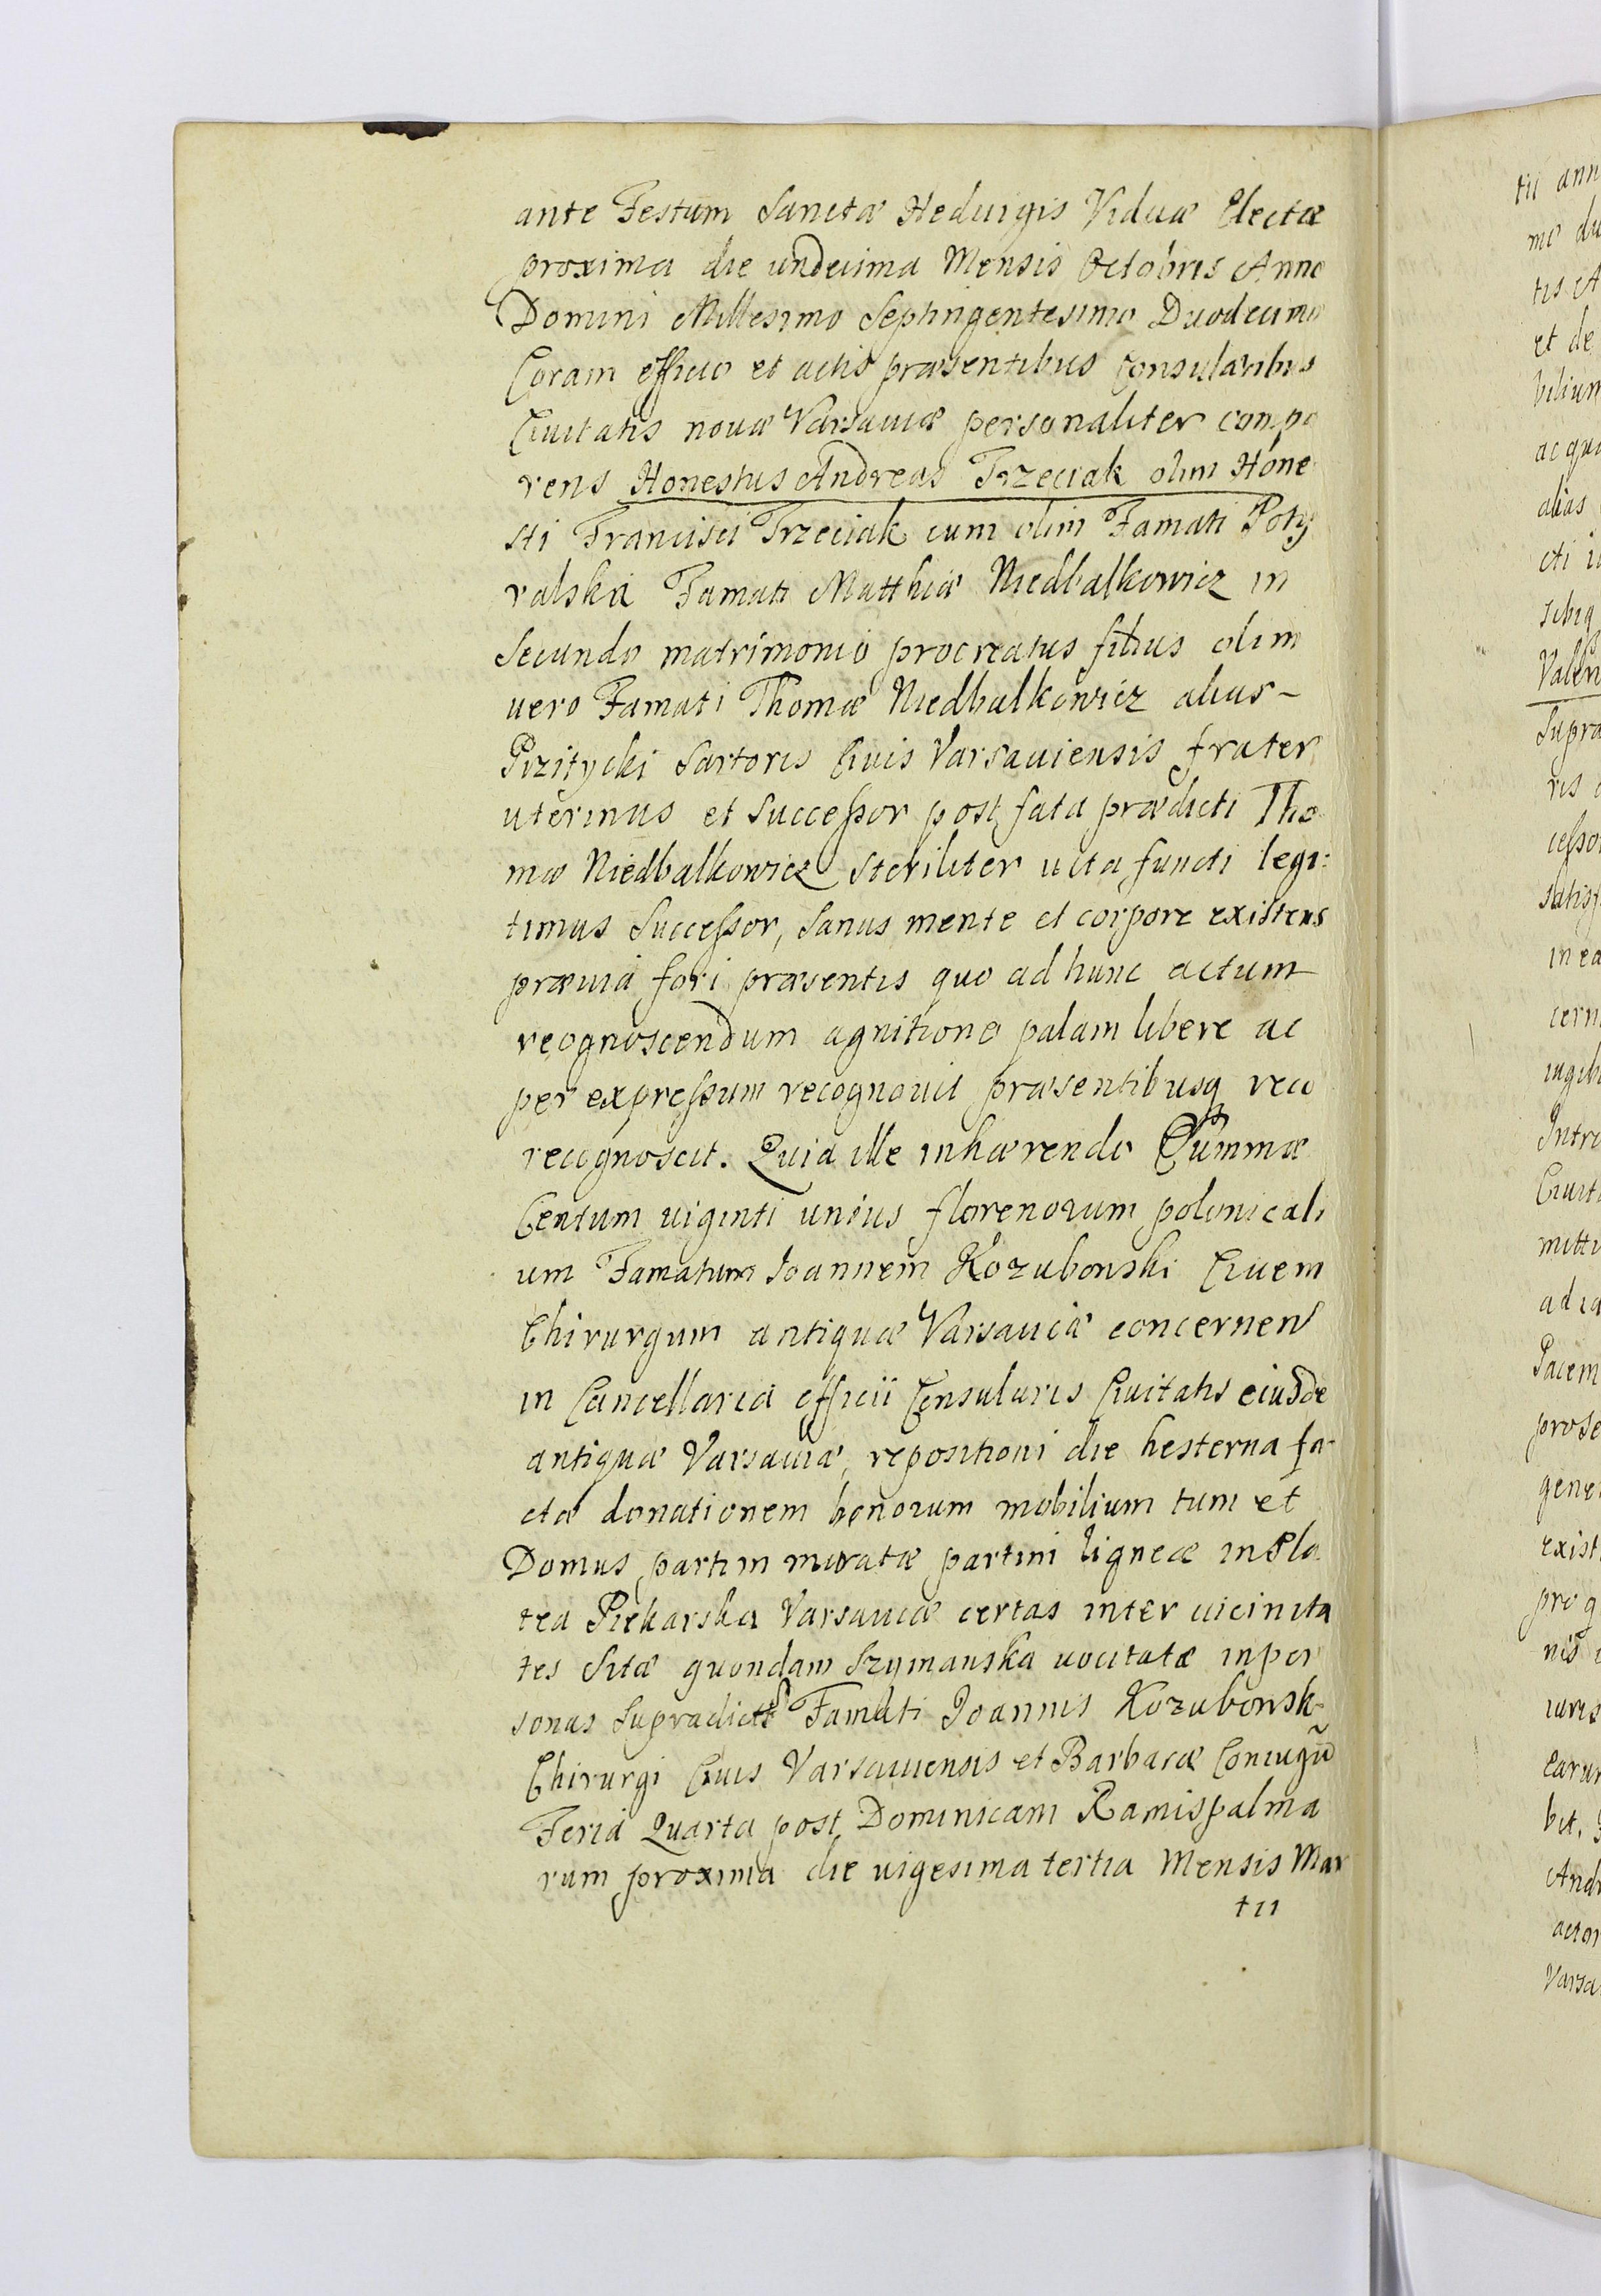 ante Festum Sanctæ Heduigis Viduæ Electæ
proxima die undecima Mensis Octobris Anno
Domini Millesimo Septingentesimo Duodecimo
Coram officio et actis præsentibus Consularibus
Ciuitatis nouæ Varsauiæ personaliter compa
rens Honestus Andreas Trzeciak olim Hone
sti Francisci Trzeciak cum olim Famati Poty
ralska Famati Matthiæ Niedbalkowicz in
Secundo matrimonio procreatus filius olim
uero Famati Thomæ Niedbalkowicz alias
Pizitycki Sartoris Ciuis Varsauiensis frater
uterinus et Successor post fata prædicti Tho
mæ Niedbalkowicz steriliter uita functi legi:
timus Successor, Sanus mente et corpore existens
præuia fori præsentis quo ad hunc actum
recognoscendum agnitione palam libere ac
per expressum recognouit præsentibusq reco
recognoscit. Quia ille inhærendo Summæ
Centum uiginti unius florenorum polonicali
um Famatum Joannem Kozubowski Ciuem
Chirurgum antiquæ Varsauiæ concernen
in Cancellaria officii Consularis Ciuitatis eiusde
antiquæ Varsauiæ, repositioni die hesterna fa
ctæ donationem bonorum mobilium tum et
Domus partim muratæ partim ligneæ in Pla
tea Piekarska Varsauiæ certas inter uicinita
tes Sitæ quondam Szymanska uocitatæ in per
sonas Supradicti Famati Joannis Kozubowsk
Chirurgi Ciuis Varsauiensis et Barbaræ Coniugũ
Feria Quarta post Dominicam Ramispalma
rum proxima die uigesima tertia Mensis Mar
tii